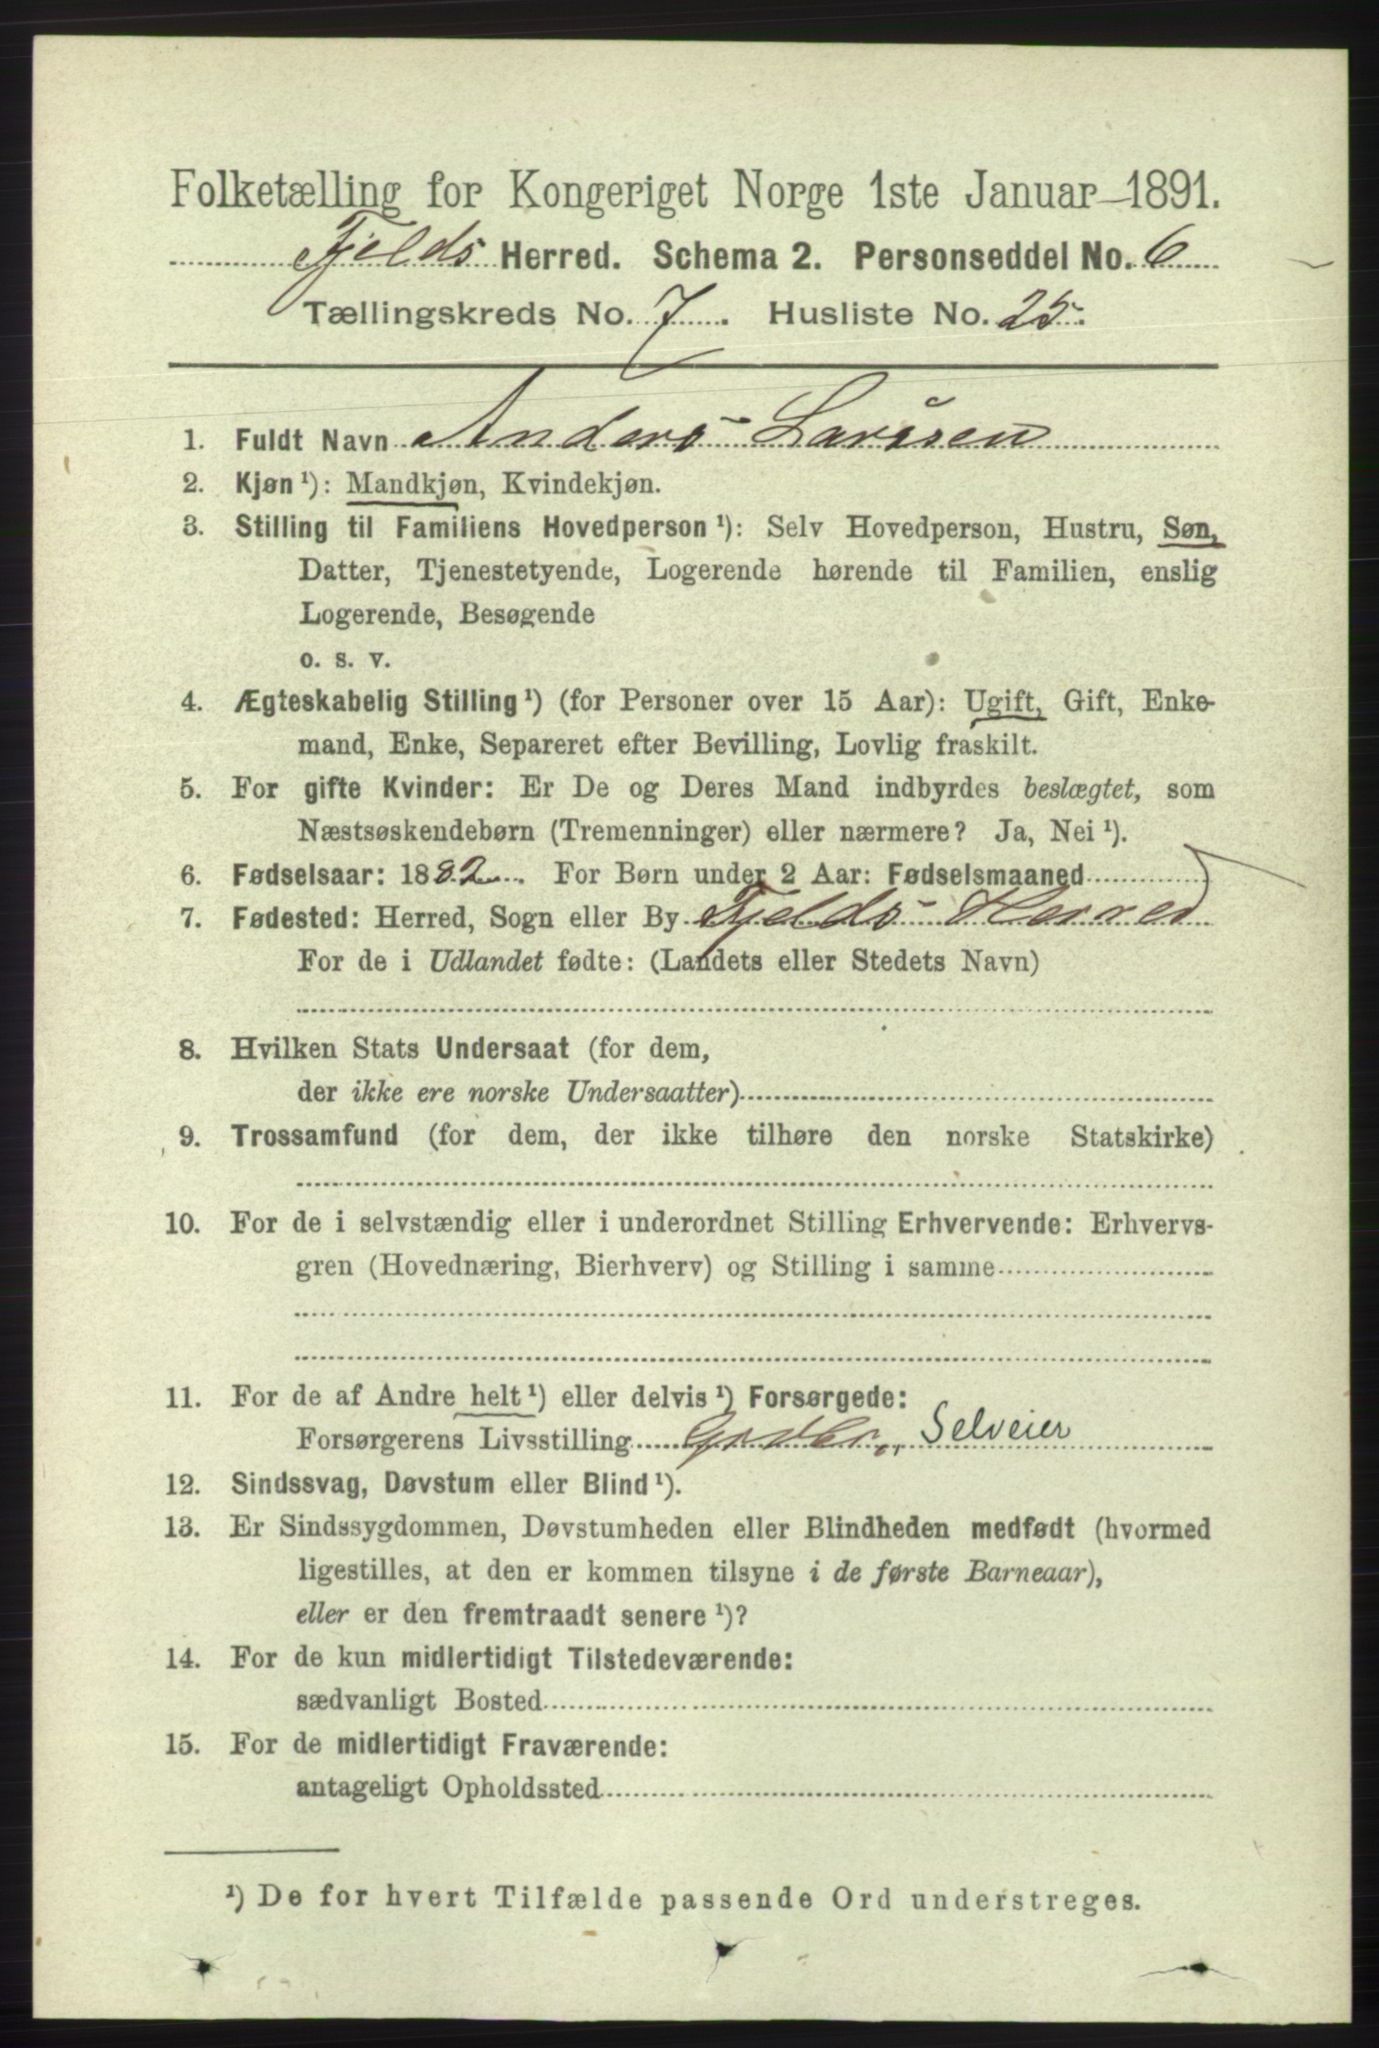 Folketælling for Kongeriget Norge 1ste Januar 1891.
Fjelds Herred. Schema 2. Personseddel No. 6
Tællingskreds No. 7. Husliste No. 25.
1. Fuldt Navn Anders Larssen
2. Kjøn¹): Mandkjøn, Kvindekjøn.
3. Stilling til Familiens Hovedperson¹): Selv Hovedperson, Hustru, Søn,
Datter, Tjenestetyende, Logerende hørende til Familien, enslig
Logerende, Besøgende
o. s. v.
4. Ægteskabelig Stilling¹) (for Personer over 15 Aar): Ugift, Gift, Enke-
mand, Enke, Separeret efter Bevilling, Lovlig fraskilt.
5. For gifte Kvinder: Er De og Deres Mand indbyrdes beslægtet, som
Næstsøskendebørn (Tremenninger) eller nærmere? Ja, Nei¹).
6. Fødselsaar: 1882. For Børn under 2 Aar: Fødselsmaaned
7. Fødested: Herred, Sogn eller By Fjelds Herred
For de i Udlandet fødte: (Landets eller Stedets Navn)
8. Hvilken Stats Undersaat (for dem,
der ikke ere norske Undersaatter)
9. Trossamfund (for dem, der ikke tilhøre den norske Statskirke)
10. For de i selvstændig eller i underordnet Stilling Erhvervende: Erhvervs-
gren (Hovednæring, Bierhverv) og Stilling i samme
11. For de af Andre helt¹) eller delvis¹) Forsørgede:
Forsørgerens Livsstilling Selveier
12. Sindssvag, Døvstum eller Blind¹).
13. Er Sindssygdommen, Døvstumheden eller Blindheden medfødt (hvormed
ligestilles, at den er kommen tilsyne i de første Barneaar),
eller er den fremtraadt senere¹)?
14. For de kun midlertidigt Tilstedeværende:
sædvanligt Bosted
15. For de midlertidigt Fraværende:
antageligt Opholdssted
¹) De for hvert Tilfælde passende Ord understreges.